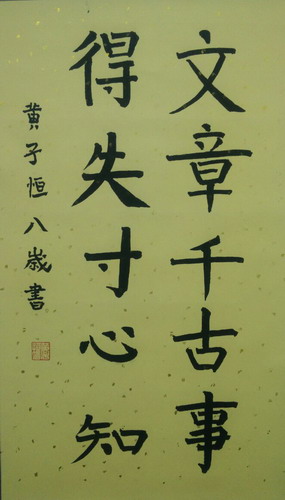 文章千古事
得失寸心知
黄子恒八歲書